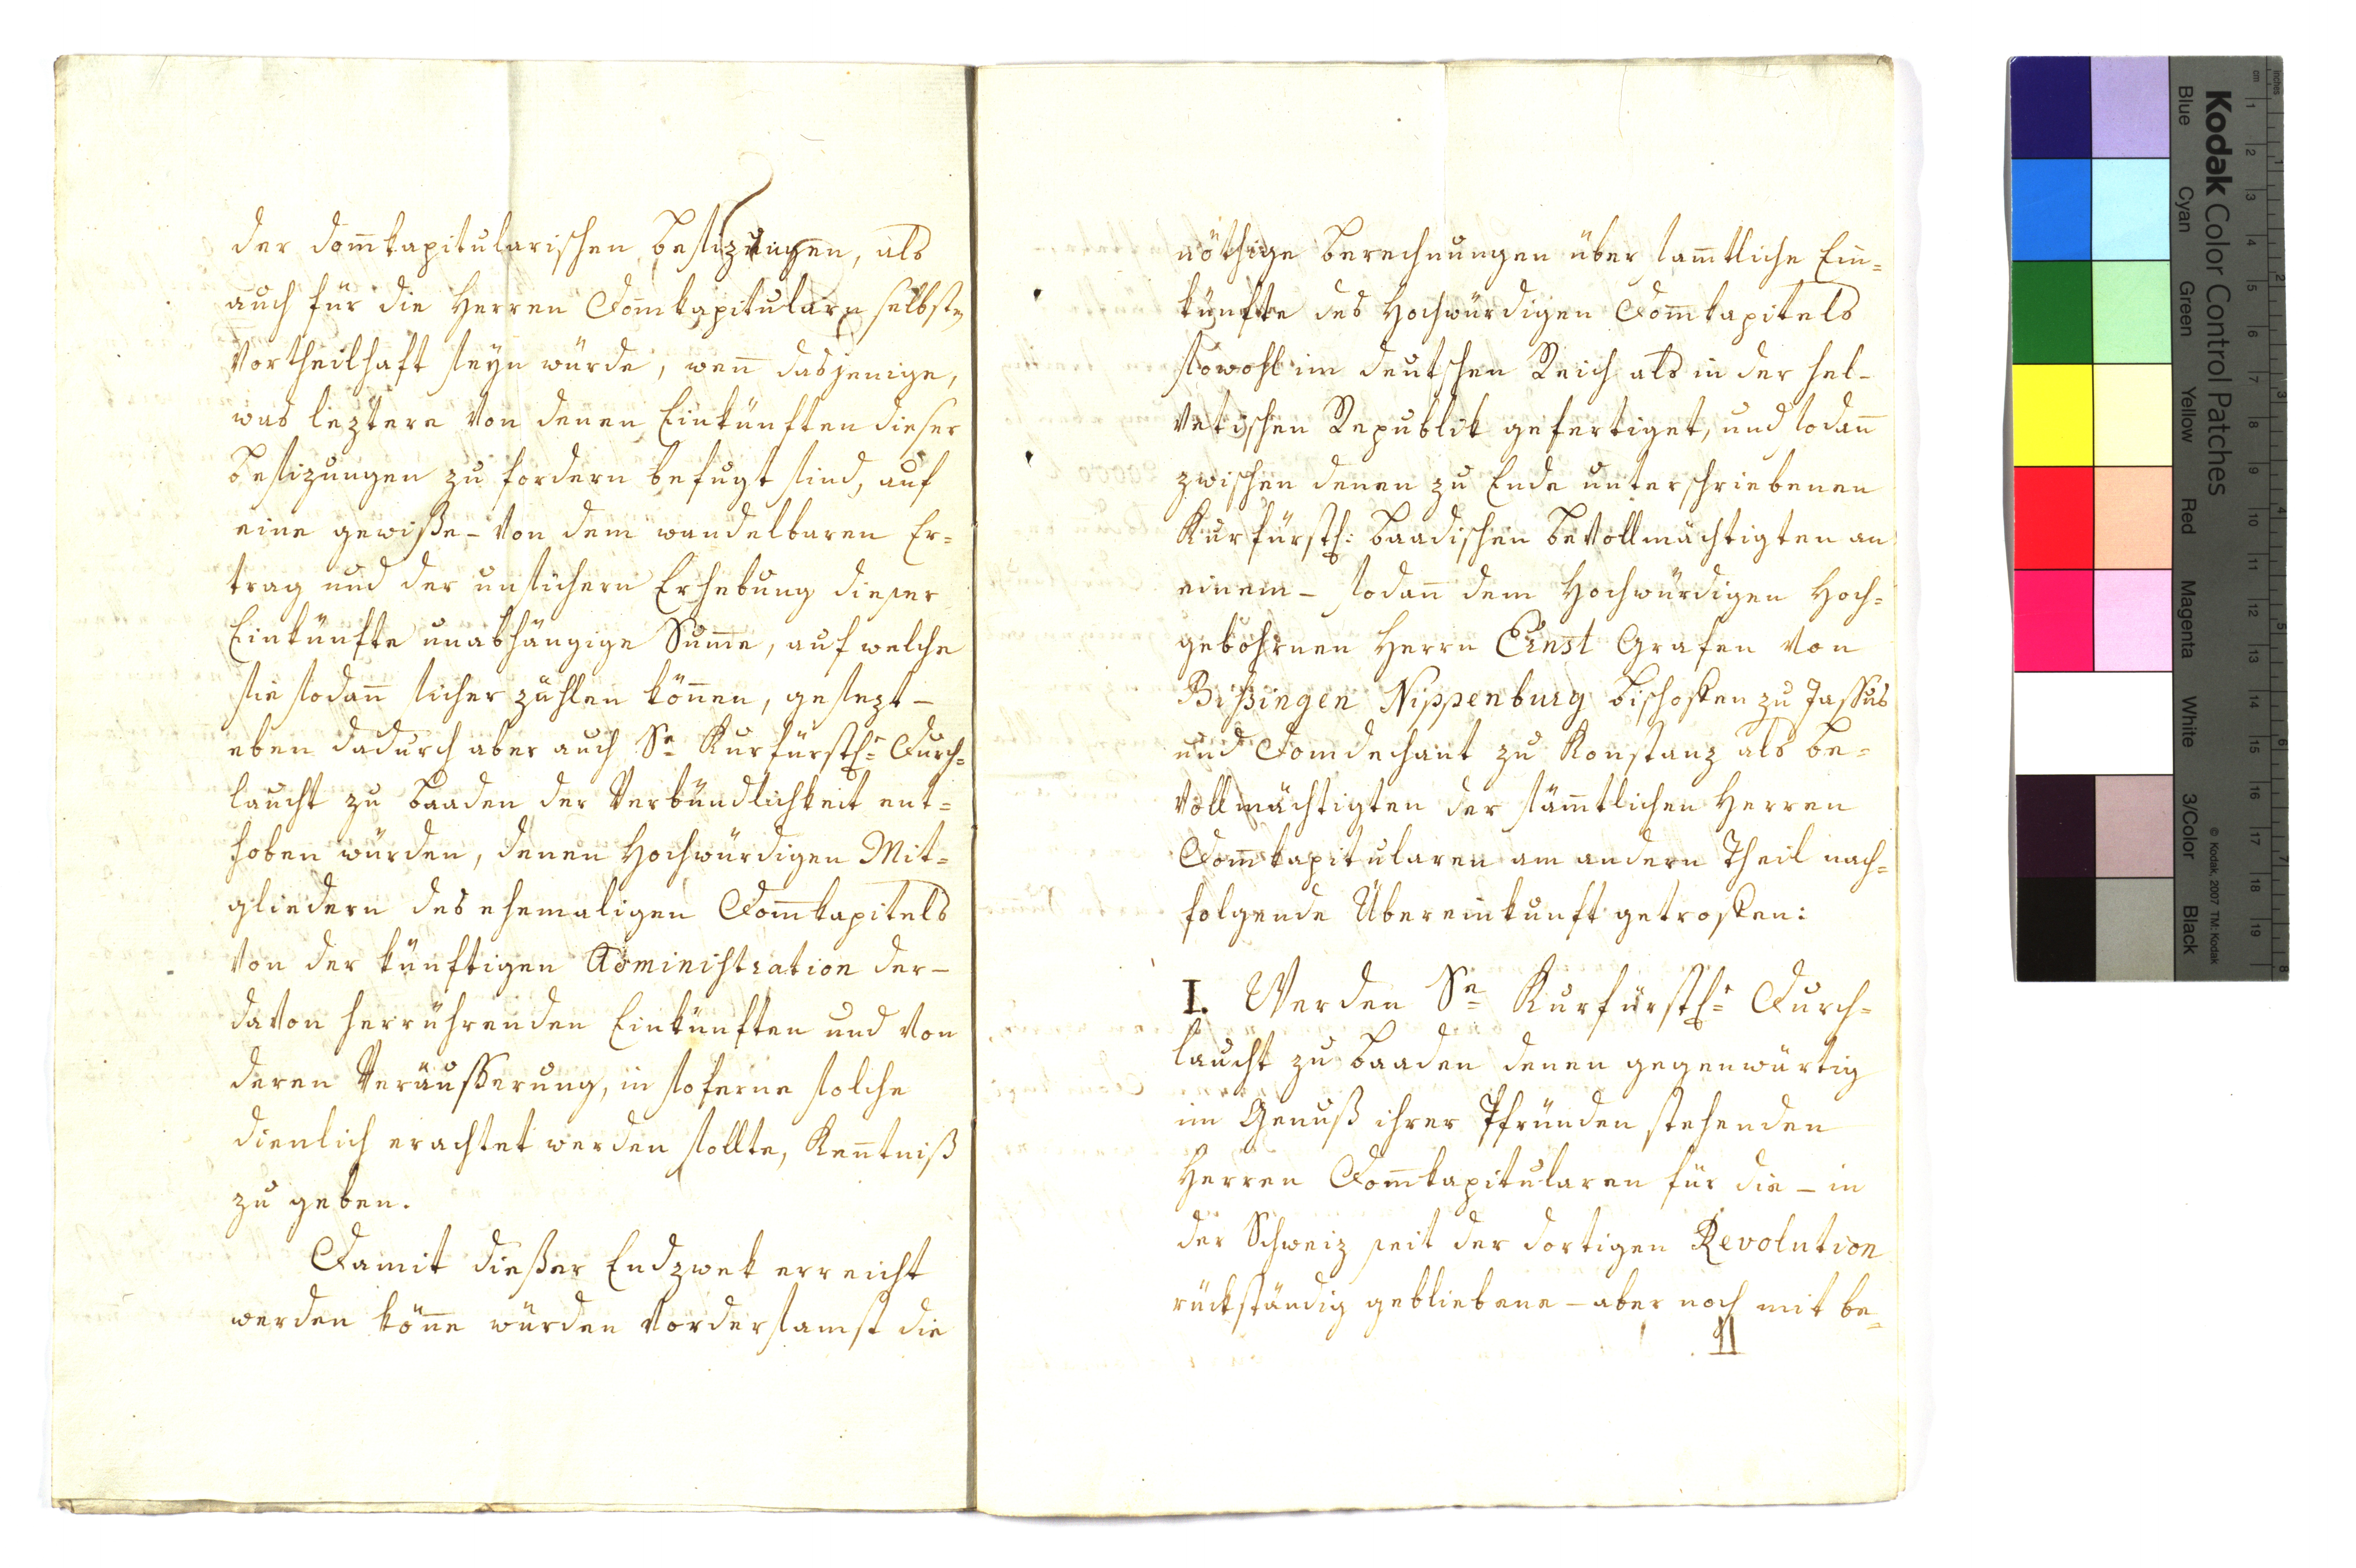 der dom̅kapitularischen besizungen, als
auch für die Herren Dom̅kapitularn selbst
vortheilhaft seyn würde, wen̅ dasjenige,
was leztere von denen Einkünften dieser
besizungen zu fordern befugt sind, auf
eine gewiße – von dem wandelbaren Er=
trag und der unsichern Erhebung dieser
Einkünfte unabhängige Sum̅e, auf welche
sie sodan̅ sicher zählen kön̅en, gesezt –
eben dadurch aber auch Se Kurfürstl: Durch=
laucht zu baaden der Verbündlichkeit ent=
hoben würden, denen Hochwürdigen Mit=
gliedern des ehemaligen Dom̅kapitels
von der künftigen Administration der –
davon herrührenden Einkünften und von
deren Veräusserung, in soferne solche
dienlich erachtet werden sollte, Ken̅tniß
zu geben.
Damit dießer Endzwek erreicht
werden kön̅e würden vordersamst die
nöthige berechnungen über sam̅tliche Ein=
künfte des Hochwürdigen Dom̅kapitels
sowohl im deutschen Reich als in der hel=
vetischen Republik gefertiget, und sodan̅
zwischen denen zu Ende unterschriebenen
Kurfürstl: baadischen bevollmächtigten an
einem – sodan̅ dem Hochwürdigen Hoch=
gebohrnen Herrn Ernst Grafen von
Bißingen Nippenburg bischoffen zu Jassus
und Domdechant zu Konstanz als be=
vollmächtigten der säm̅tlichen Herren
Dom̅kapitularen am andern Theil nach=
folgende Übereinkunft getroffen:
I. Werden Se Kurfürstl: Durch=
laucht zu baaden denen gegenwärtig
im Genuß ihrer Pfründen stehenden
Herren Dom̅kapitularen für die – in
der Schweiz seit der dortigen Revolution
rückständig gebliebene – aber noch mit be=